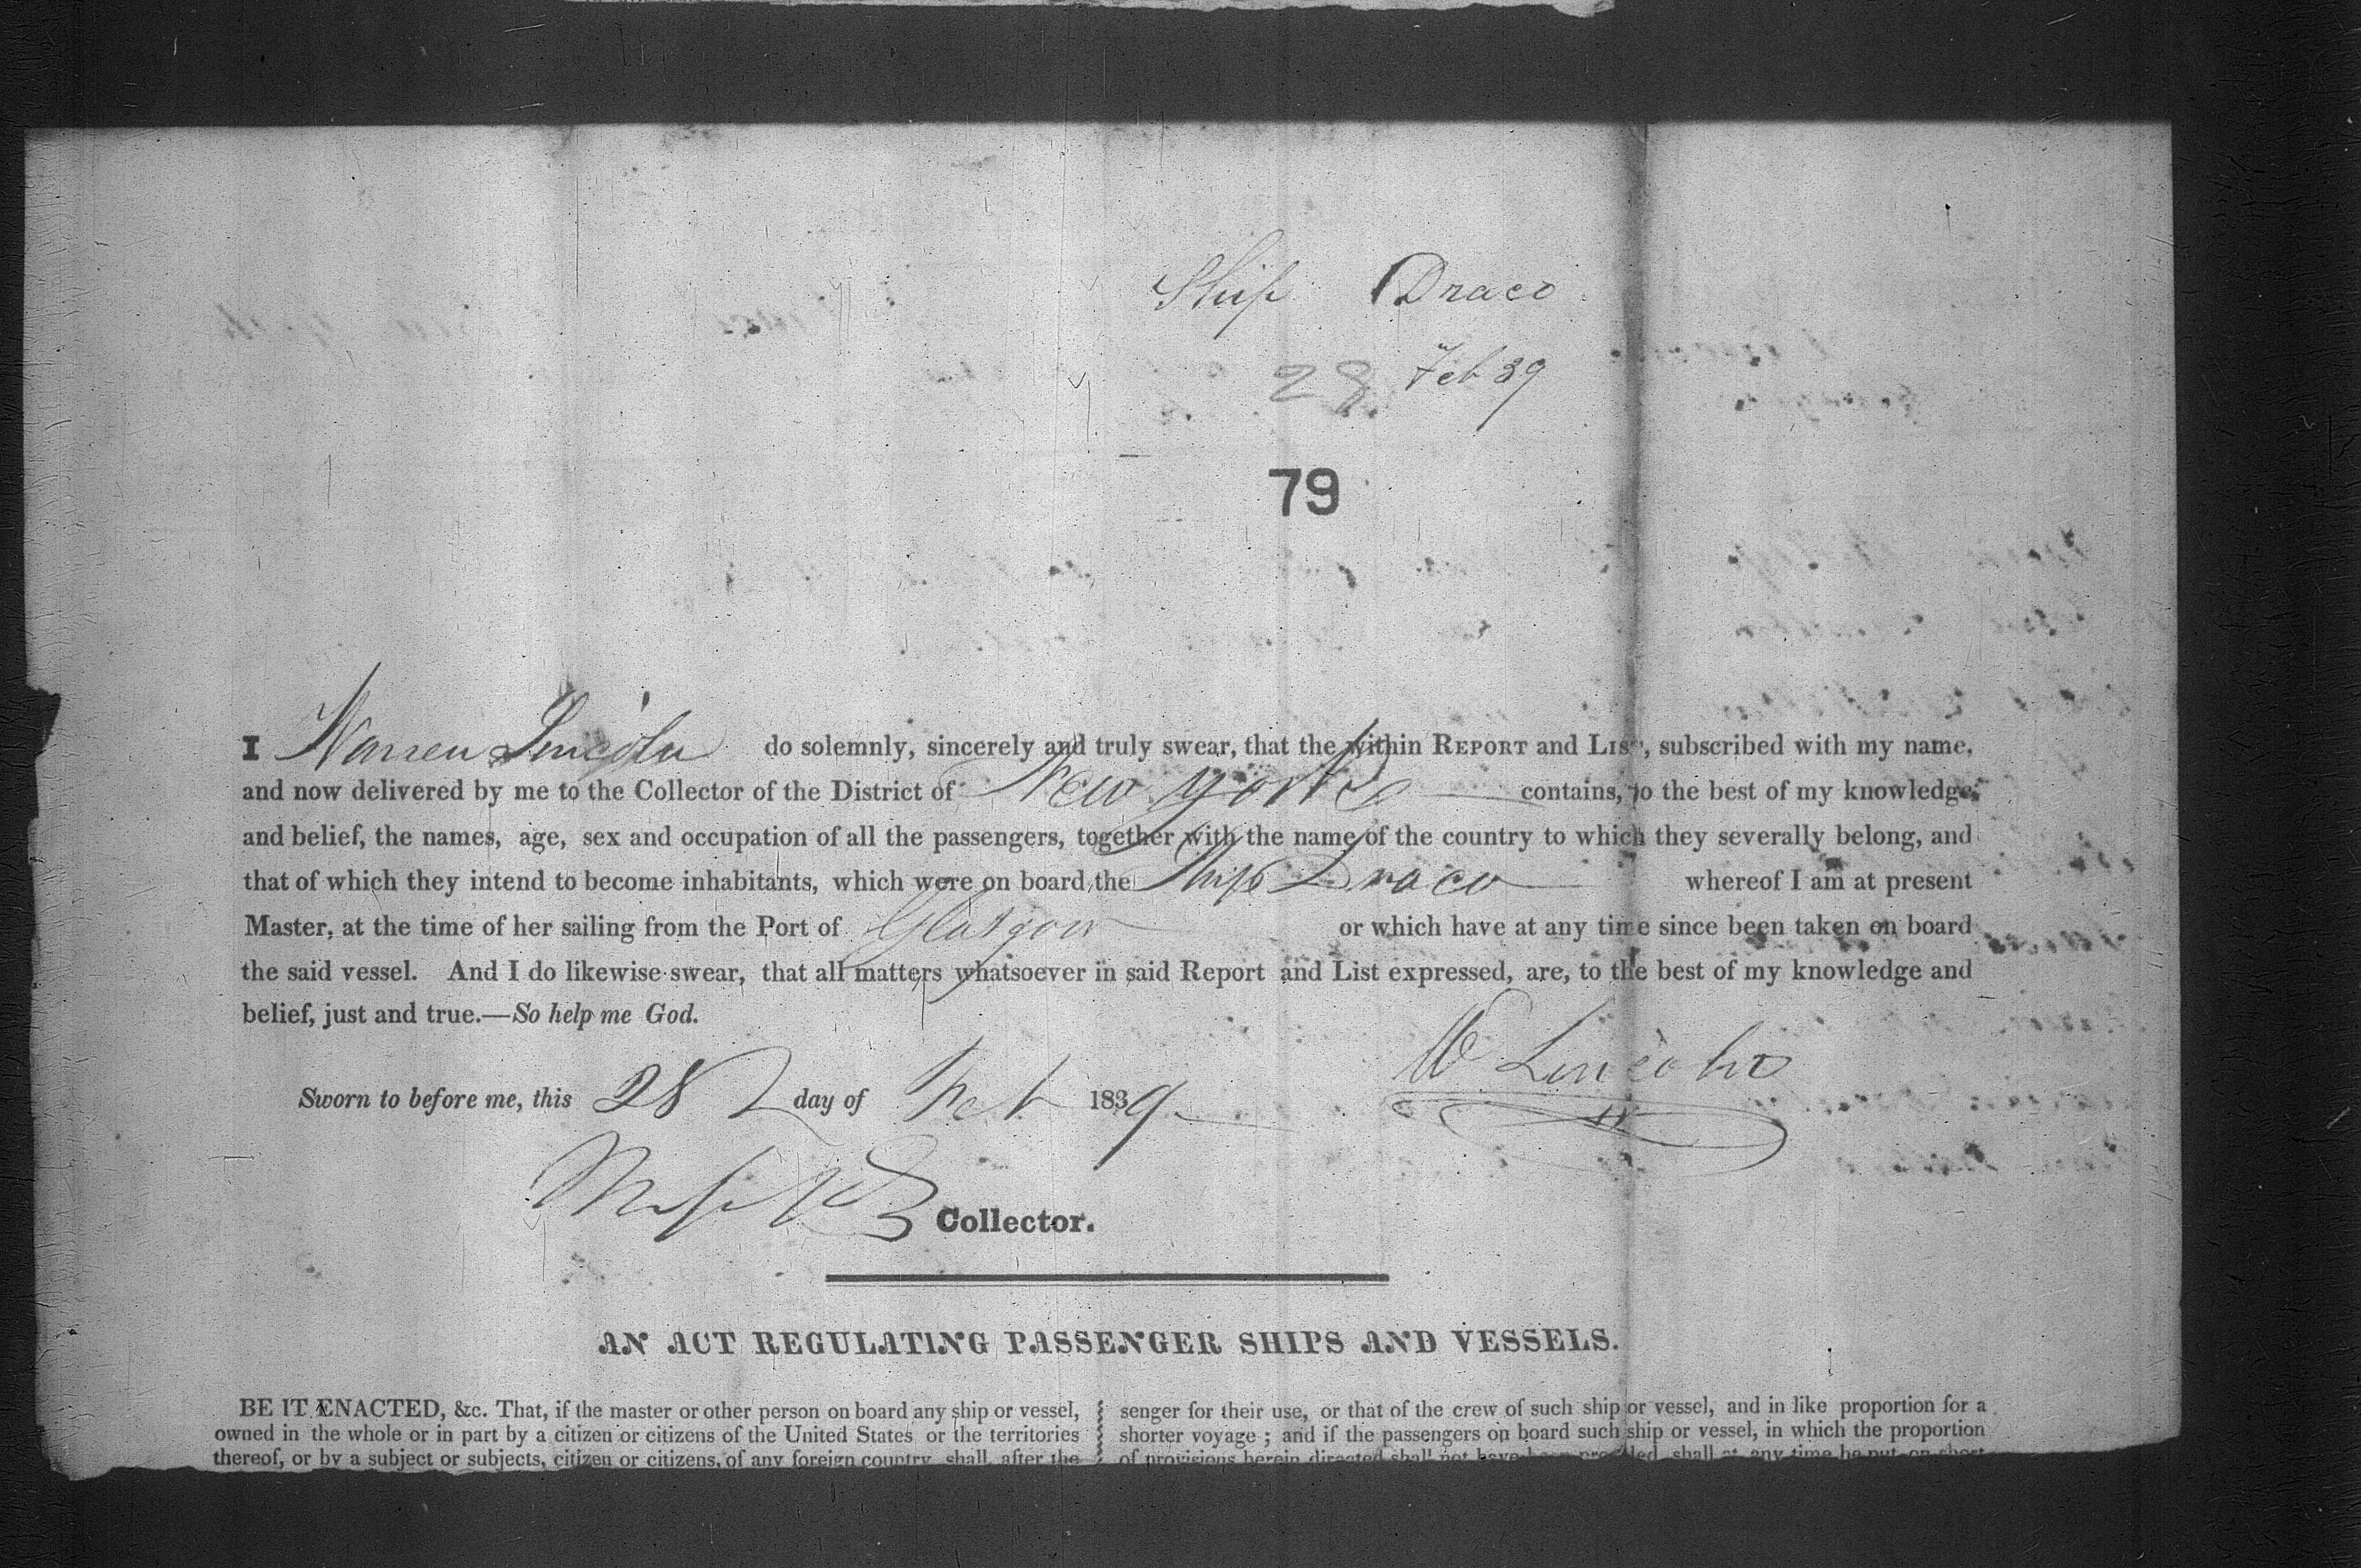 Ship Draco
28 Feb 39
79
I Warren Lincoln do solemnly, sincerely and truly swear, that the within REPORT and LIST, subscribed with my name,
and now delivered by me to the Collector of the District of New York contains, to the best of my knowledge,
and belief, the names, age, sex and occupation of all the passengers, together with the name of the country to which they severally belong, and
that of which they intend to become inhabitants, which were on board the Ship Draco whereof I am at present
Master, at the time of her sailing from the Port of Glasgow or which have at any time since been taken on board
the said vessel. And I do likewise swear, that all matters whatsoever in said Report and List expressed, are, to the best of my knowledge and
belief, just and true.—So help me God.
W Lincoln
Sworn to before me, this 28 day of Feb 1839
Collector.
AN ACT REGULATING PASSENGER SHIPS AND VESSELS.
BE IT ENACTED, &c. That, if the master or other person on board any ship or vessel,
owned in the whole or in part by a citizen or citizens of the United States or the territories
thereof, or by a subject or subjects, citizen or citizens, of any foreign country, shall, after the
senger for their use, or that of the crew of such ship or vessel, and in like proportion for a
shorter voyage ; and if the passengers on board such ship or vessel, in which the proportion
of provisions herein directed shall not have been provided, shall at any time be put on short